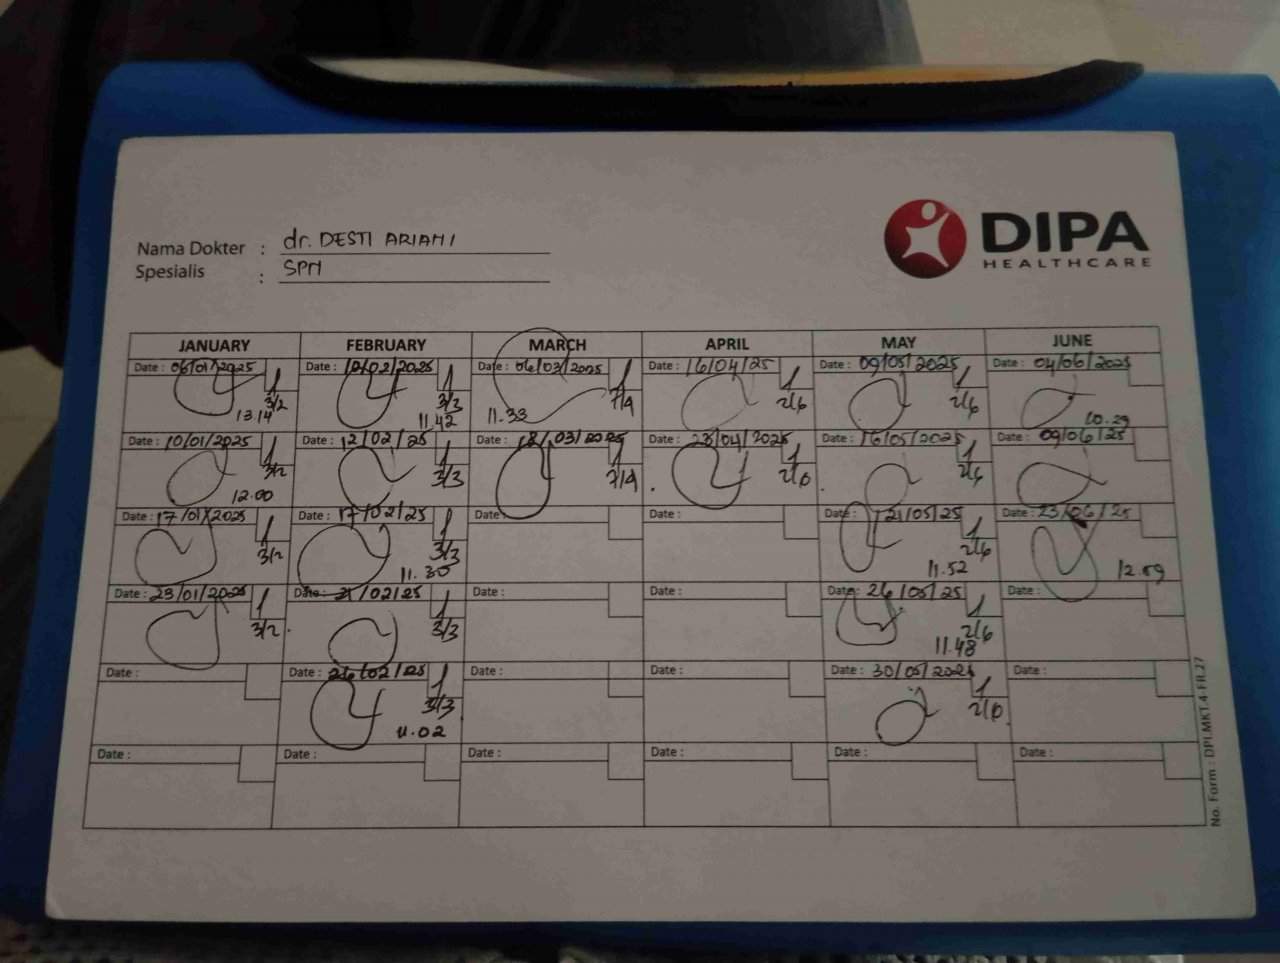 DIPA
HEALTHCARE
Nama Dokter : dr. DESTI ARIANI
Spesialis : SPM
JANUARY FEBRUARY MARCH APRIL MAY JUNE
Date : 06/01/2025 Date : 10/02/2025 Date : 06/03/2025 Date : 16/04/25 Date : 09/05/2025 Date : 04/06/2025
3/2 3/3 7/4 2/6 2/6
13.14 11.42 11.33 10.29
Date : 10/01/2025 Date : 12/02/25 Date : 18/03/2025 Date : 23/04/2025 Date : 16/05/2025 Date : 09/06/25
3/2 3/3 7/4 2/6 2/6
12.00
Date : 17/01/2025 Date : 17/02/25 Date : Date : Date : 21/05/25 Date : 23/06/25
3/2 3/3 2/6
11.30 11.52 12.09
Date : 23/01/2025 Date : 21/02/25 Date : Date : Date : 26/05/25 Date :
3/2 3/3 2/6
11.48
Date : Date : 26/02/25 Date : Date : Date : 30/05/2025 Date :
3/3 2/6
11.02
Date : Date : Date : Date : Date : Date :
No. Form : DPI.MKT.4-FR.27